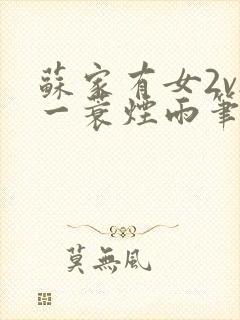 蘇家有女2v
一蓑煙雨筆
莫無風